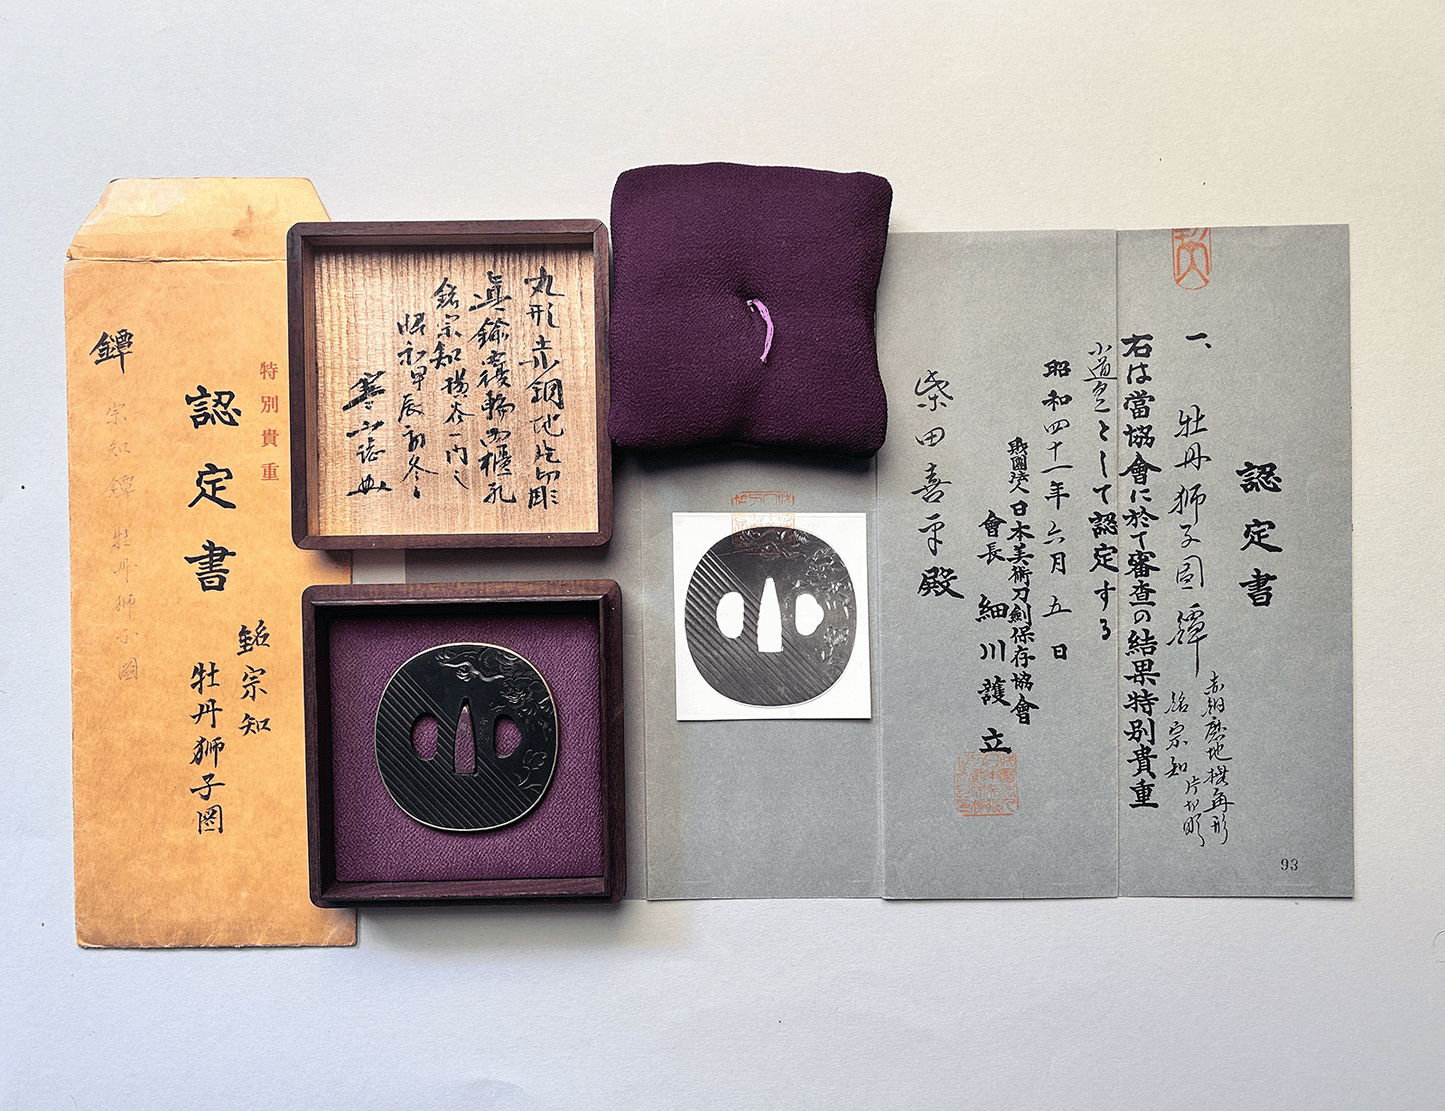 認定書
一、牡丹獅子図鐔
赤銅磨地撫角形
片切彫
銘宗知
右は當協會に於て審査の結果特別貴重
小道具として認定する
昭和四十一年六月五日
財團法人日本美術刀劍保存協會
會長 細川護立
柴田喜平殿
93
丸形赤銅地片切彫
真鍮覆輪両櫃孔
銘宗知横谷一門之
昭和甲辰初冬
寒山誌
特別貴重
鐔
認定書
銘宗知
牡丹獅子図
宗知鐔牡丹獅子図